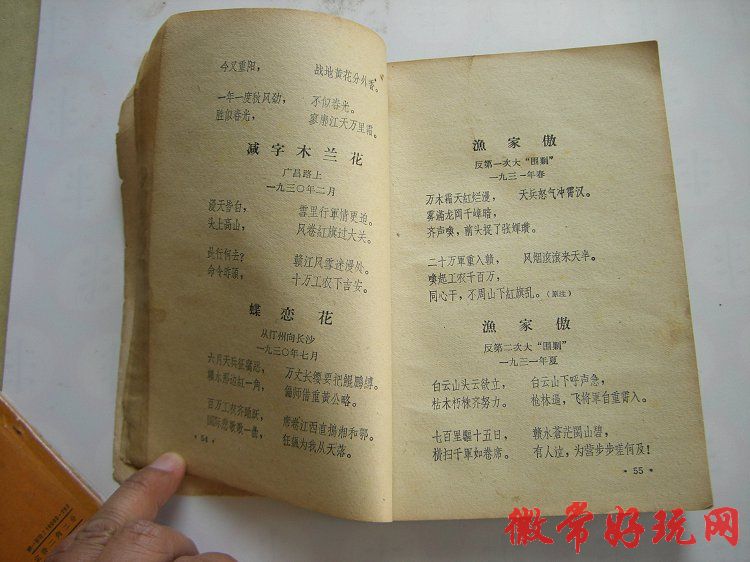 今又重阳，　　战地黄花分外香。
一年一度秋风劲，　不似春光。
胜似春光，　　寥廓江天万里霜。
减字木兰花
广昌路上
一九三〇年二月
漫天皆白，　　雪里行軍情更迫。
头上高山，　　风卷紅旗过大关。
此行何去？　　赣江风雪迷漫处。
命令昨頒，　　十万工农下吉安。
蝶恋花
从汀州向长沙
一九三〇年七月
六月天兵征腐恶，　万丈长缨要把鯤鵬縛。
赣水那边紅一角，　偏师借重黄公略。
百万工农齐踊跃，　席卷江西直搗湘和鄂。
国际悲歌歌一曲，　狂飆为我从天落。
· 54 ·
漁家傲
反第一次大“围剿”
一九三一年春
万木霜天紅烂漫，　天兵怒气冲霄汉。
雾滿龙岡千嶂暗，
齐声喚，前头捉了张輝瓚。
二十万軍重入赣，　风烟滚滚来天半。
喚起工农千百万，
同心干，不周山下紅旗乱。（原注）
漁家傲
反第二次大“围剿”
一九三一年夏
白云山头云欲立，　白云山下呼声急，
枯木朽株齐努力。　枪林逼，飞将軍自重霄入。
七百里驅十五日，　赣水苍茫閩山碧，
横扫千軍如卷席。　有人泣，为营步步嗟何及！
· 55 ·
徽常好玩网